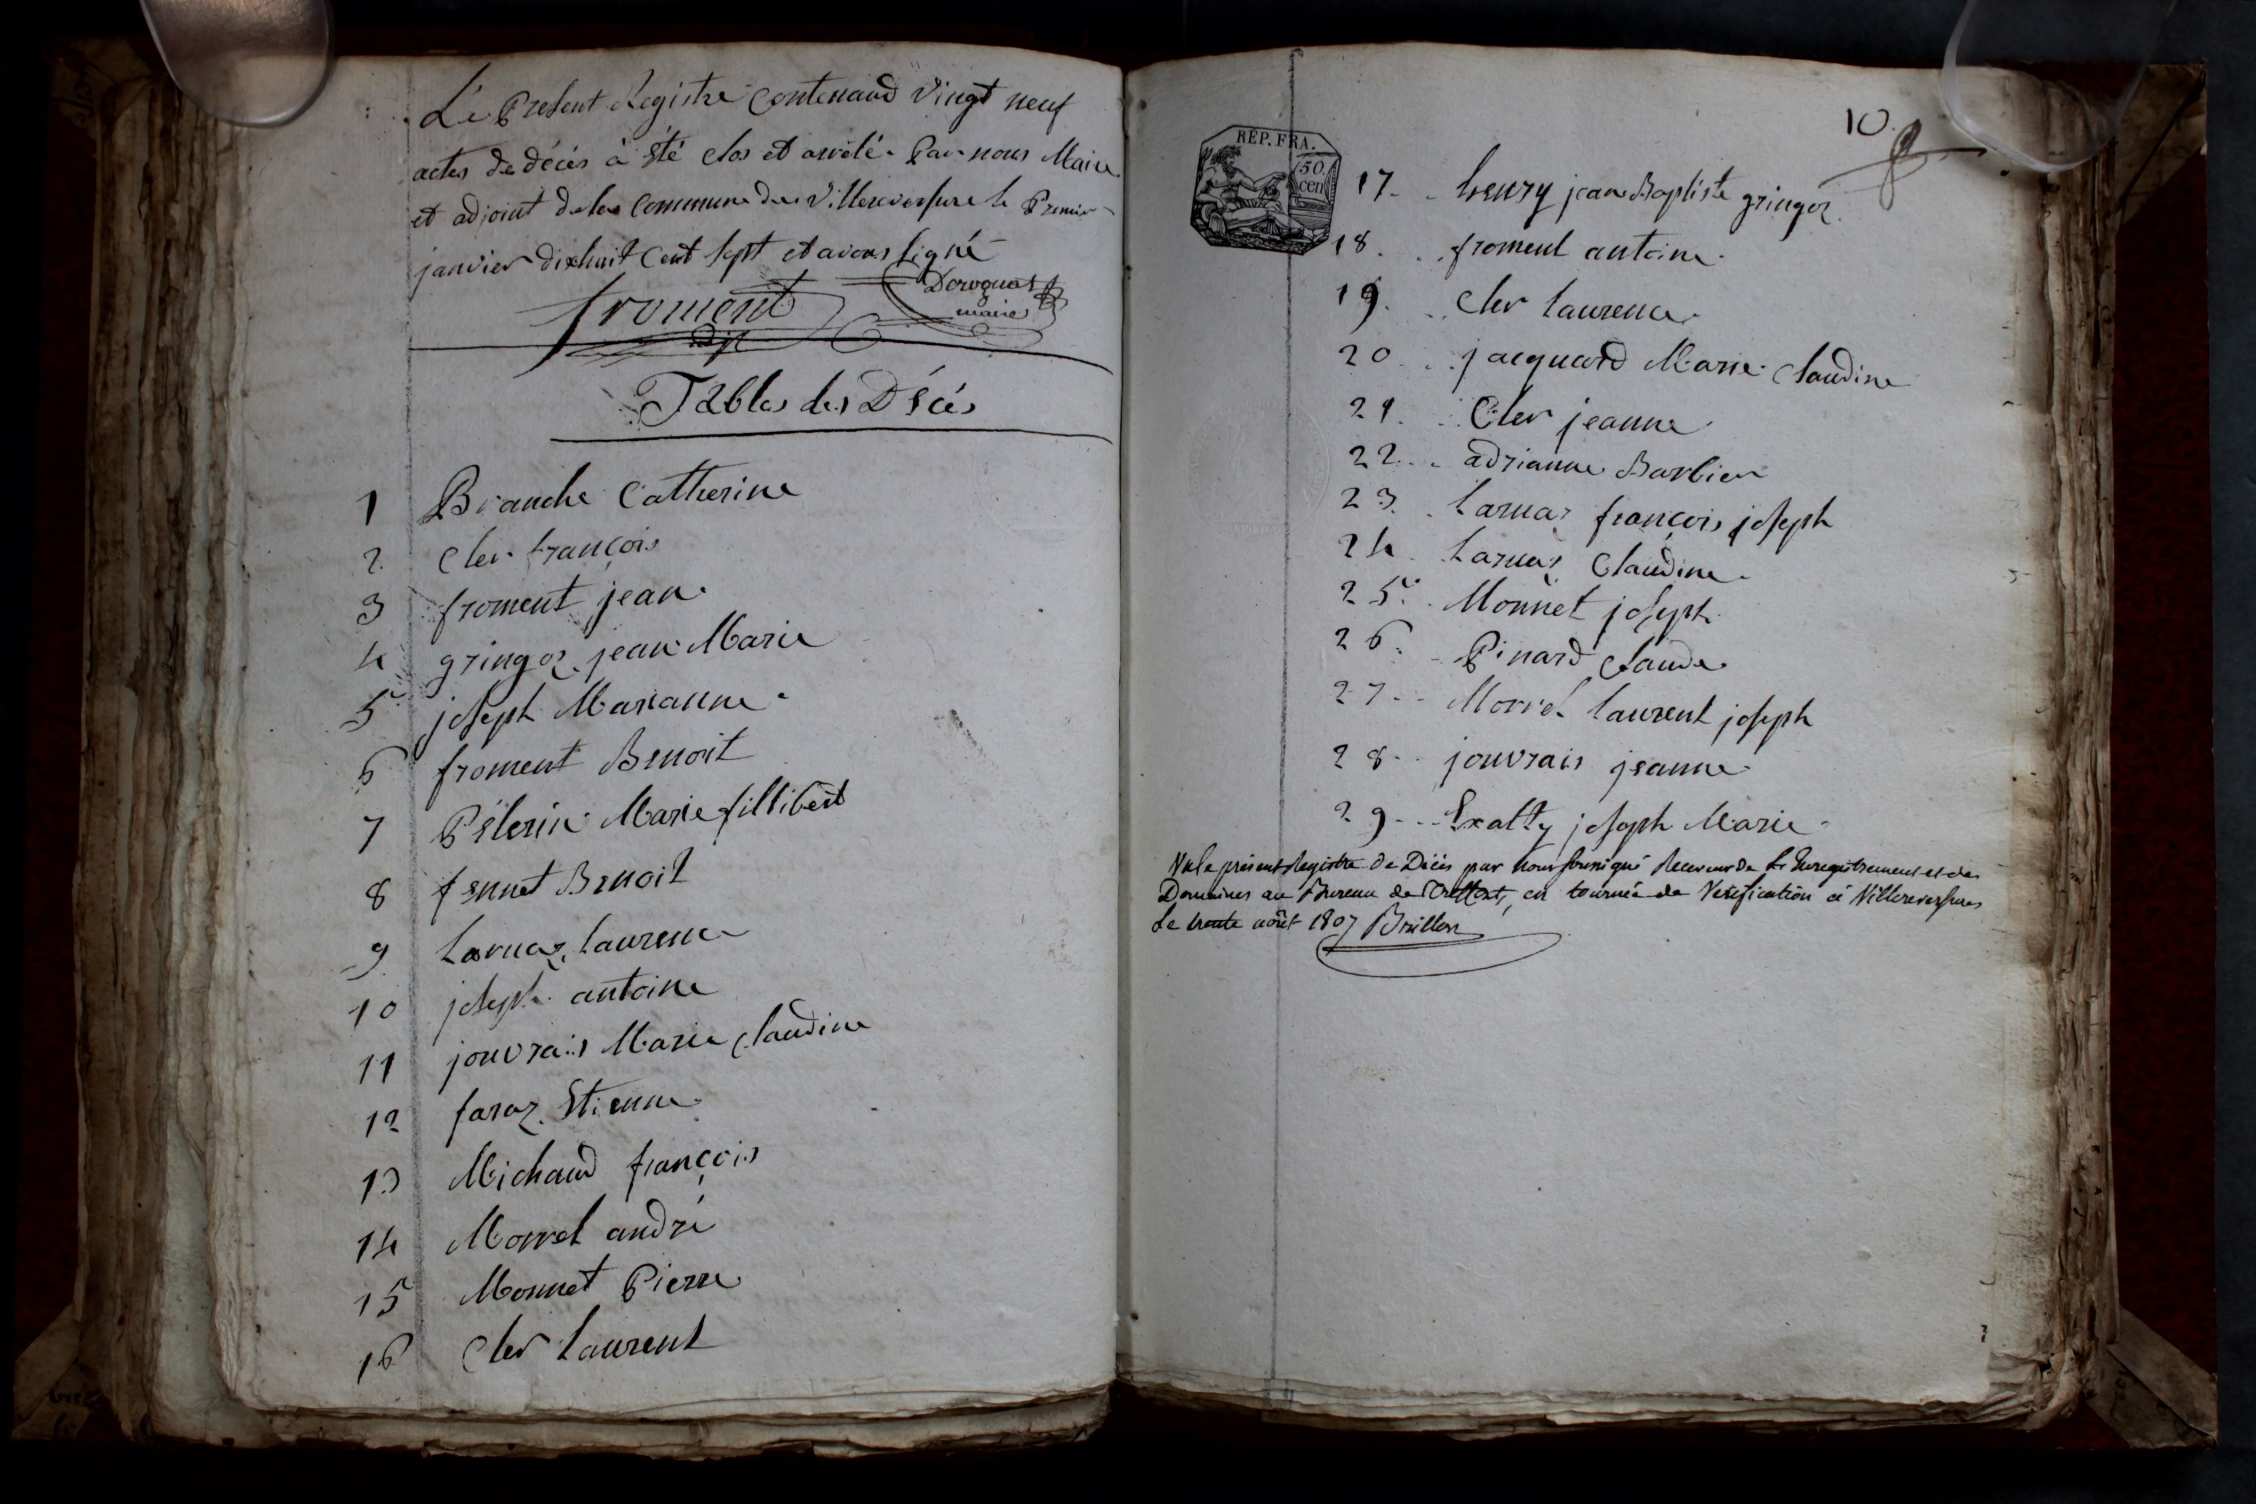 Le Present Registre Contenand vingt neuf
actes de décés à Eté clos et arrêté Par nous Maire
et adjoint de la Commune de Villereversure le Premier
janvier dixhuit Cent Sept et avons Signé
froment
adjt
maire
Tables des Décés
1 Branche Catherine
2 Cler françois
3 froment jean
4 gringoz jean Marie
5 joseph Marianne
6 froment Benoit
7 Pèlerin Marie fillibert
8 fennet Benoit
9 Larnaz Laurence
10 joseph antoine
11 jouvrais Marie Claudine
12 faraz Etienne
13 Michaud françois
14 Morrel andré
15 Monnet Pierre
16 Cler Laurent
10
REP. FRA.
50
cen
17 henry jean Baptiste gringoz
18 froment antoine
19 Cler Laurence
20 jacquard Marie Claudine
21 Cler jeanne
22 adrianne Barbier
23 Larnaz françois joseph
24 Larnaz Claudine
25 Monnet joseph
26 Pinard Claude
27 Morrel Laurent joseph
28 jouvrais jeanne
29 joseph Marie
Vu le présent Registre de Décès par nous soussigné Receveur de l'Enregistrement et des
Domaines au Bureau de en tournée de Vérification à Villereversure
Le trente août 1807